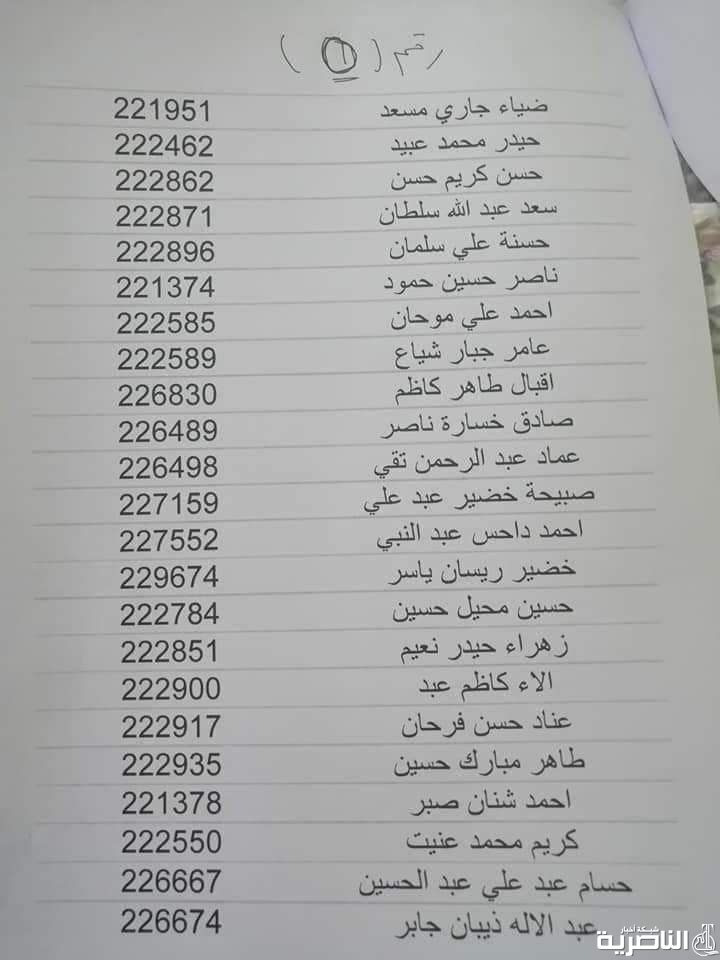 رقم (١)
ضياء جاري مسعد 221951
حيدر محمد عبيد 222462
حسن كريم حسن 222862
سعد عبد الله سلطان 222871
حسنة علي سلمان 222896
ناصر حسين حمود 221374
احمد علي موحان 222585
عامر جبار شياع 222589
اقبال طاهر كاظم 226830
صادق خسارة ناصر 226489
عماد عبد الرحمن تقي 226498
صبيحة خضير عبد علي 227159
احمد داحس عبد النبي 227552
خضير ريسان ياسر 229674
حسين محيل حسين 222784
زهراء حيدر نعيم 222851
الاء كاظم عبد 222900
عناد حسن فرحان 222917
طاهر مبارك حسين 222935
احمد شنان صبر 221378
كريم محمد عنيت 222550
حسام عبد علي عبد الحسين 226667
عبد الاله ذيبان جابر 226674
شبكة أخبار
الناصرية